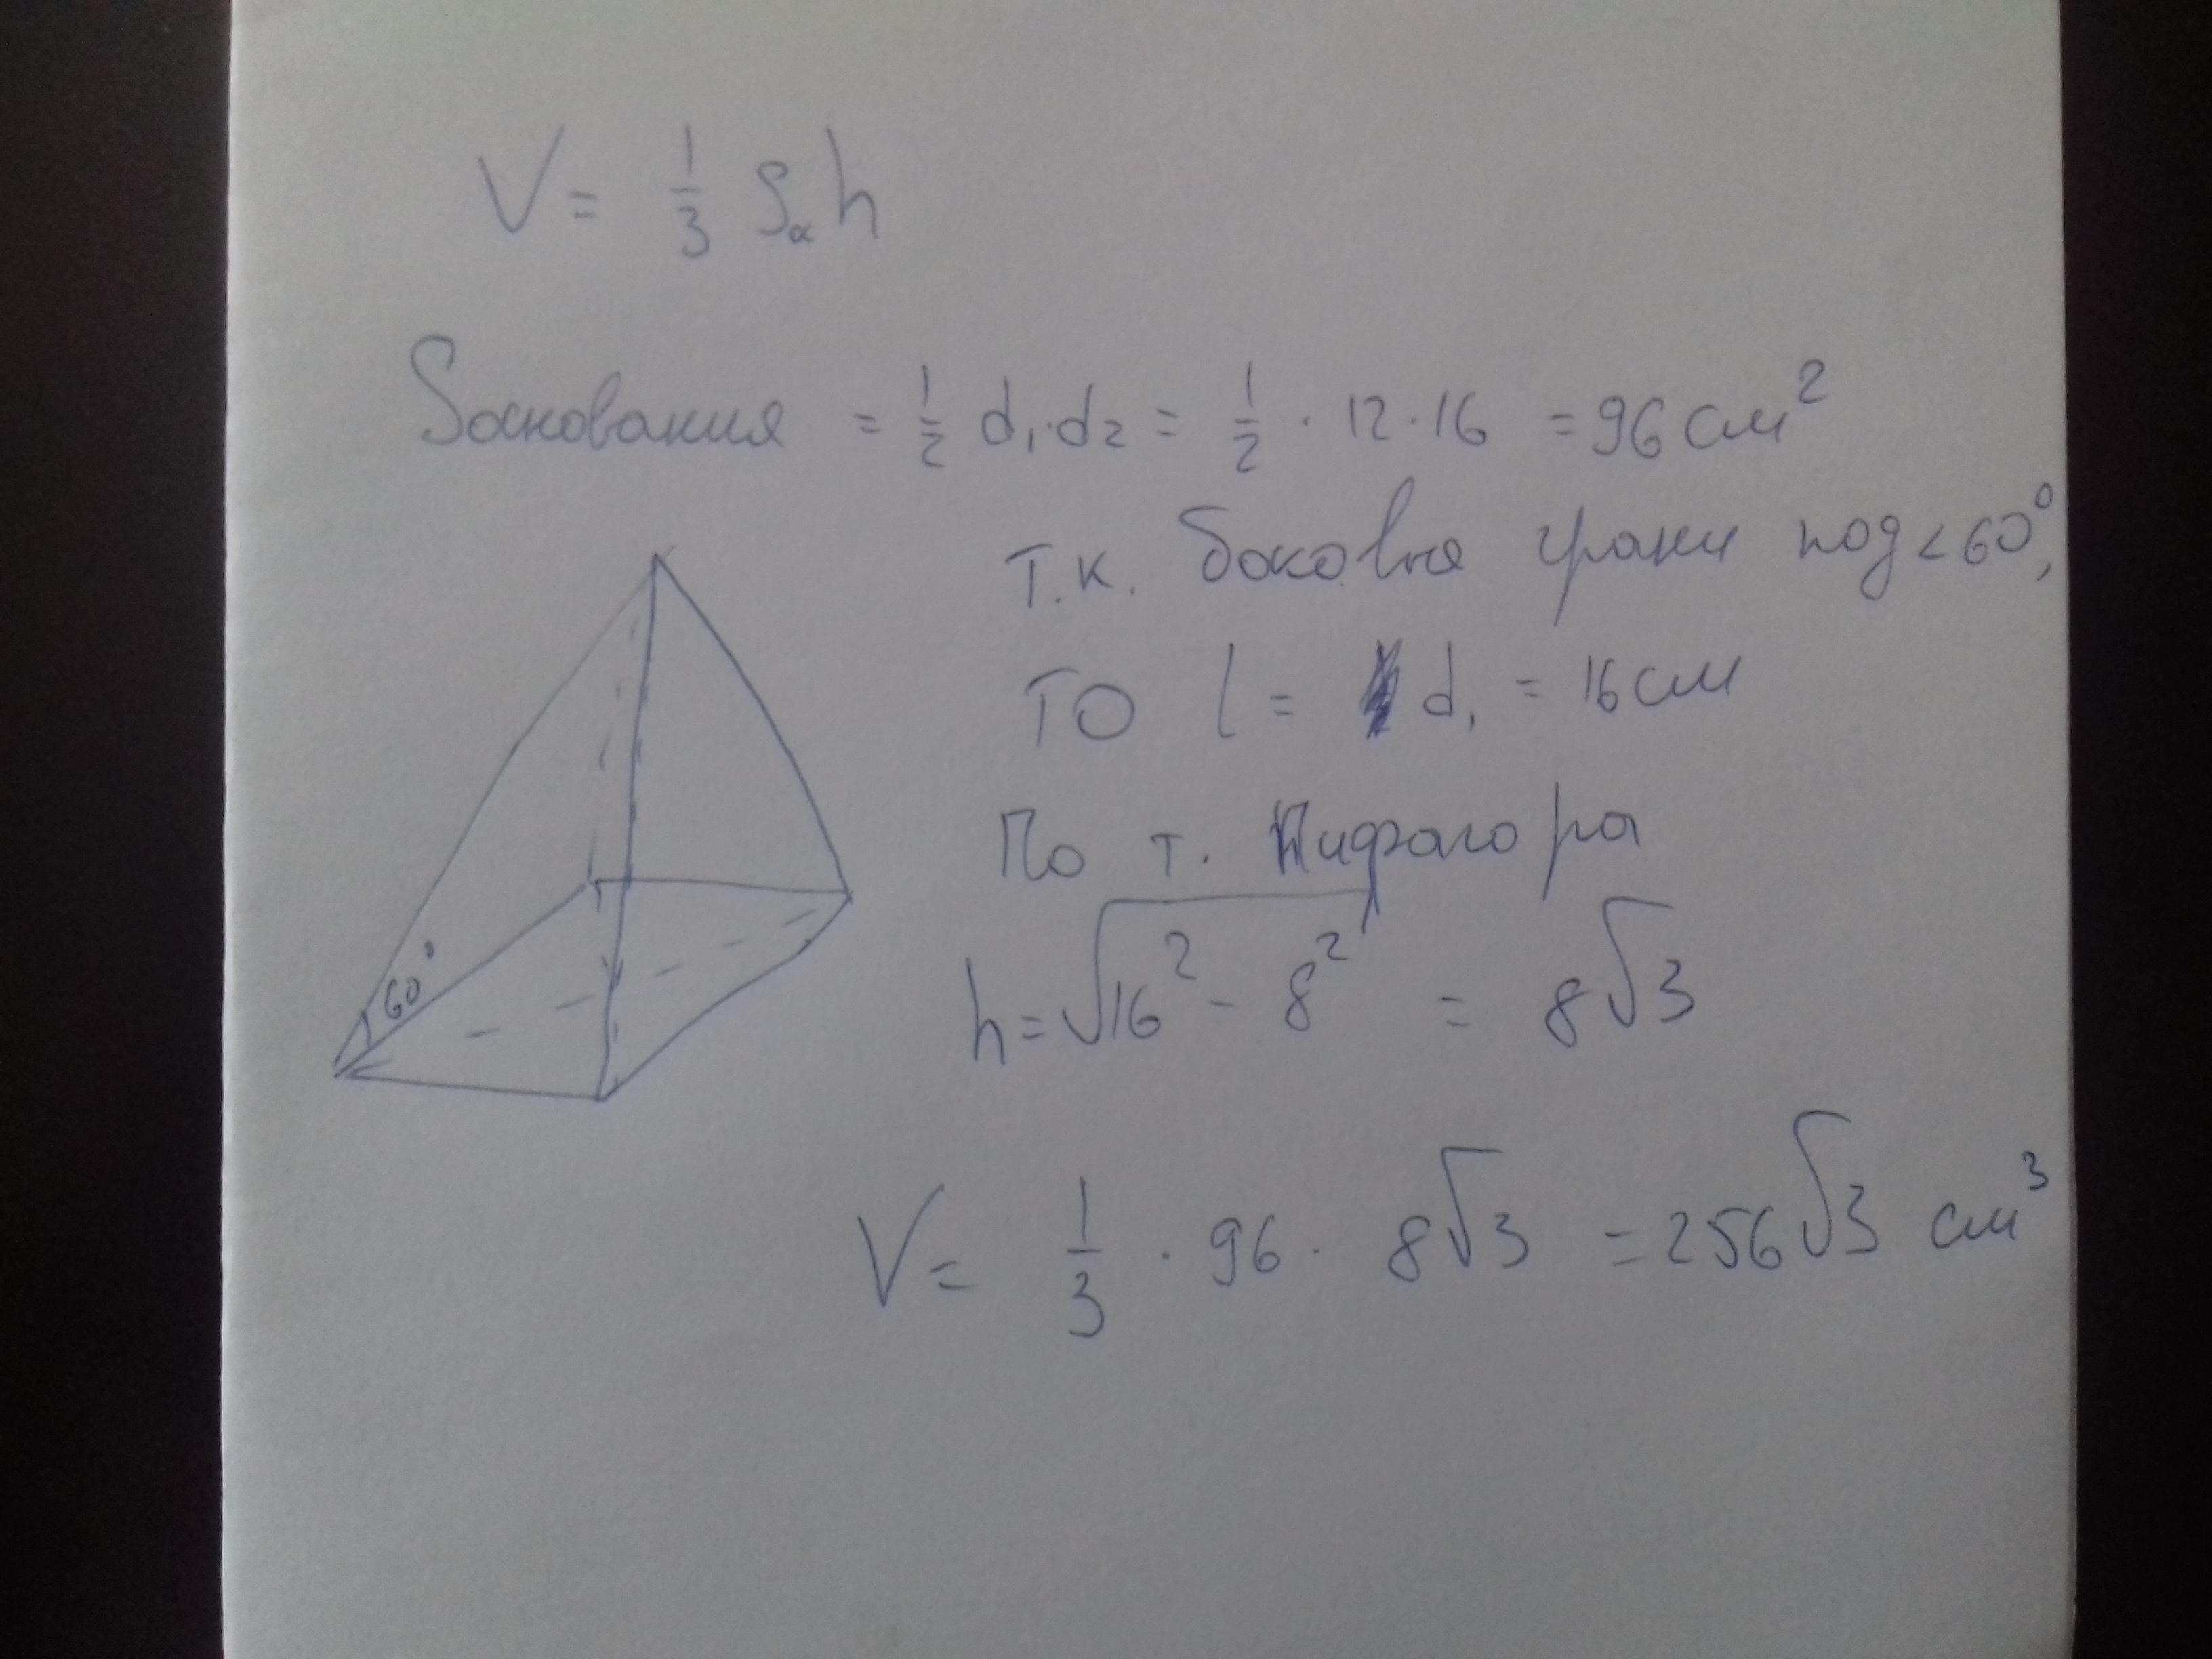 V = 1/3 Sα h
Sоснования = 1/2 d₁·d₂ = 1/2 · 12 · 16 = 96 см²
т.к. боковые грани под < 60°,
то l = d₁ = 16 см
По т. Пифагора
60°
h = √16² - 8² = 8√3
V = 1/3 · 96 · 8√3 = 256√3 см³